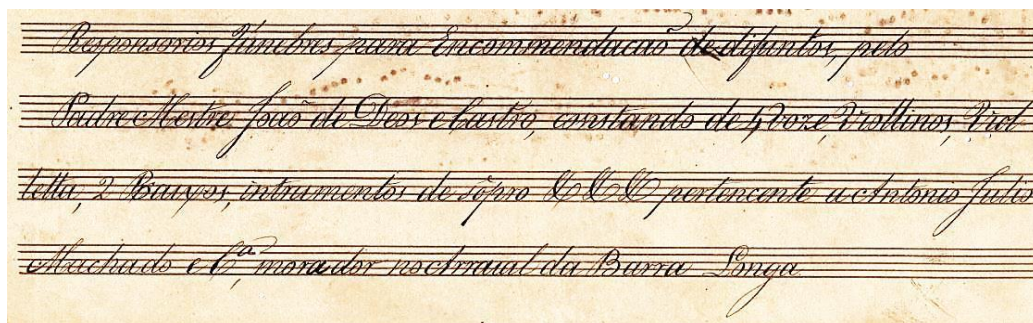 Responsorios Fúnebres para Encommendacaõ de difuntos, pelo
Padre Mestre Joaõ de Deos e Castro, constando de 4 Voze, Viollinos, Viol-
letta, 2 Baixos, intrumentos de sôpro &&& pertencente a Antonio Julio
Machado e C.ª, morador no Arraial da Barra Longa